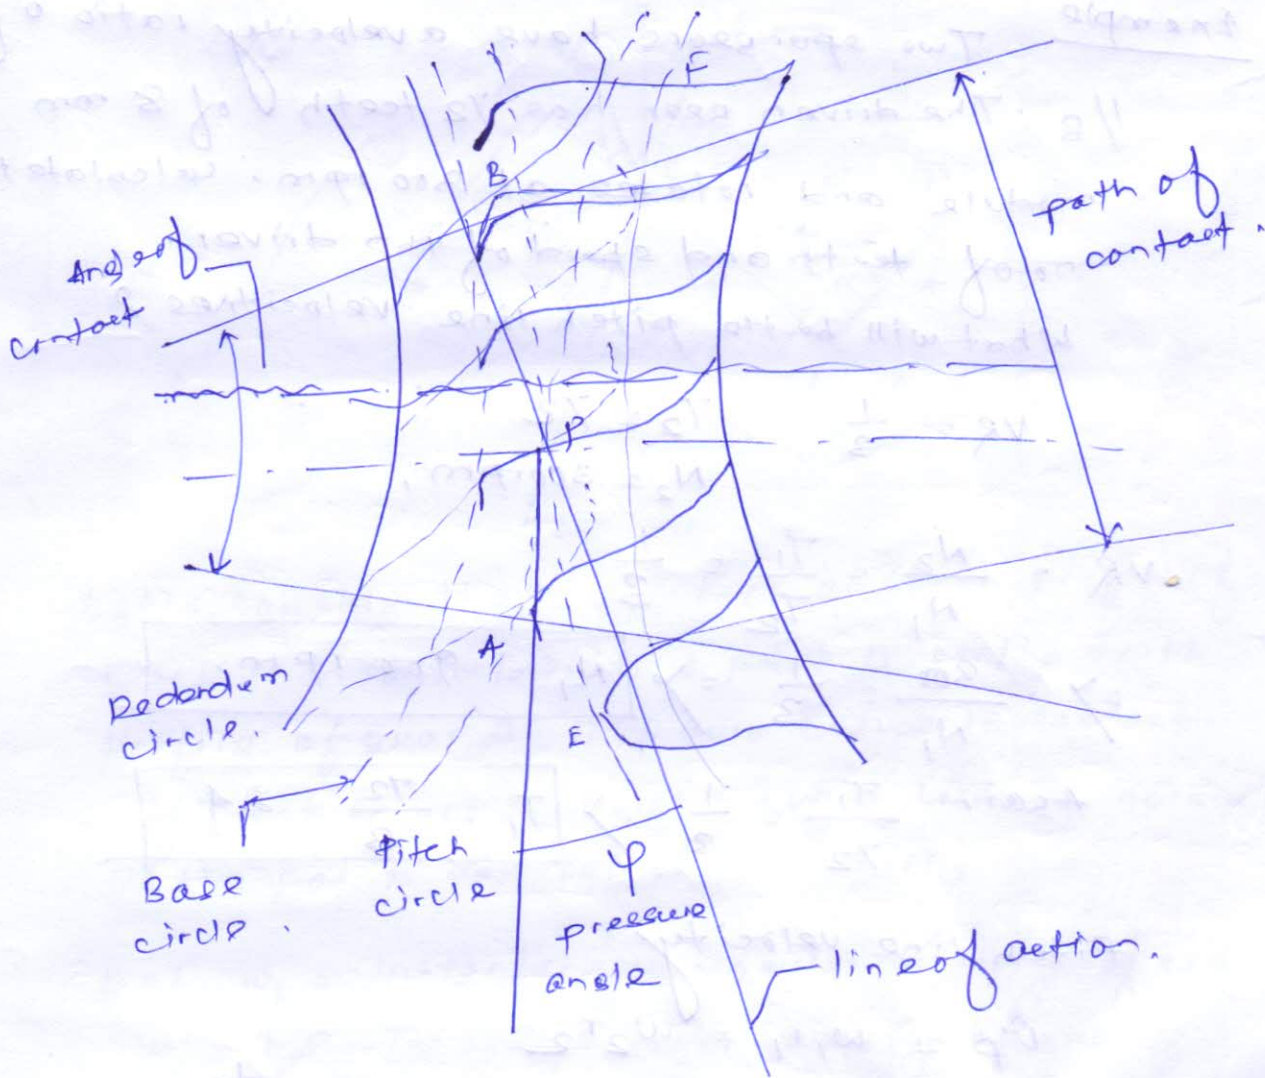 F
B
path of
contact.
Angle of
contact
P
A
Dedendum
circle.
E
Base
circle.
Pitch
circle
φ
pressure
angle
line of action.